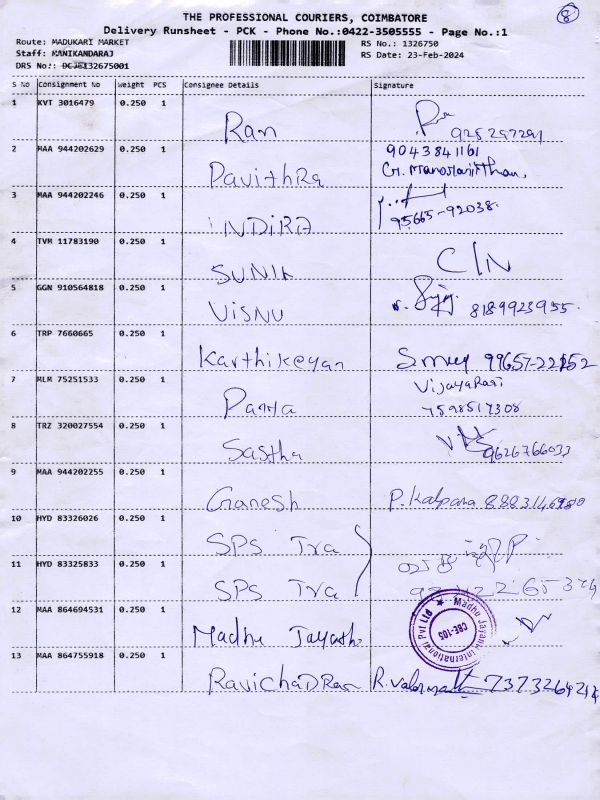 8
THE PROFESSIONAL COURIERS, COIMBATORE
Delivery Runsheet - PCK - Phone No.:0422-3505555 - Page No.:1
Route: MADUKARI MARKET
RS No.: 1326750
Staff: MANIKANDARAJ
RS Date: 23-Feb-2024
DRS No.: 132675001
S No Consignment No Weight PCS Consignee Details Signature
1 KVT 3016479 0.250 1
Ran 925297291
2 MAA 944202629 0.250 1 9043841161
Pavithra G. Manoranjitham.
3 MAA 944202246 0.250 1
INDIRA 95665-92038.
4 TVM 11783190 0.250 1
SUNIL C/N
5 GGN 910564818 0.250 1
VISNU 8189923955.
6 TRP 7660665 0.250 1
Karthikeyan 99657-22152
7 MLM 75251533 0.250 1 Vijayarasi
Pamya 7598517308
8 TRZ 320027554 0.250 1
Sastha 9626766033
9 MAA 944202255 0.250 1
Ganesh P. Kalpana
10 HYD 83326026 0.250 1
SPS Tra
11 HYD 83325833 0.250 1
SPS Tra
12 MAA 864694531 0.250 1
Madhu Jayanth
Madhu Jayanth International Pvt Ltd
CBE-105
13 MAA 864755918 0.250 1
RaviChaDRan 7373264214